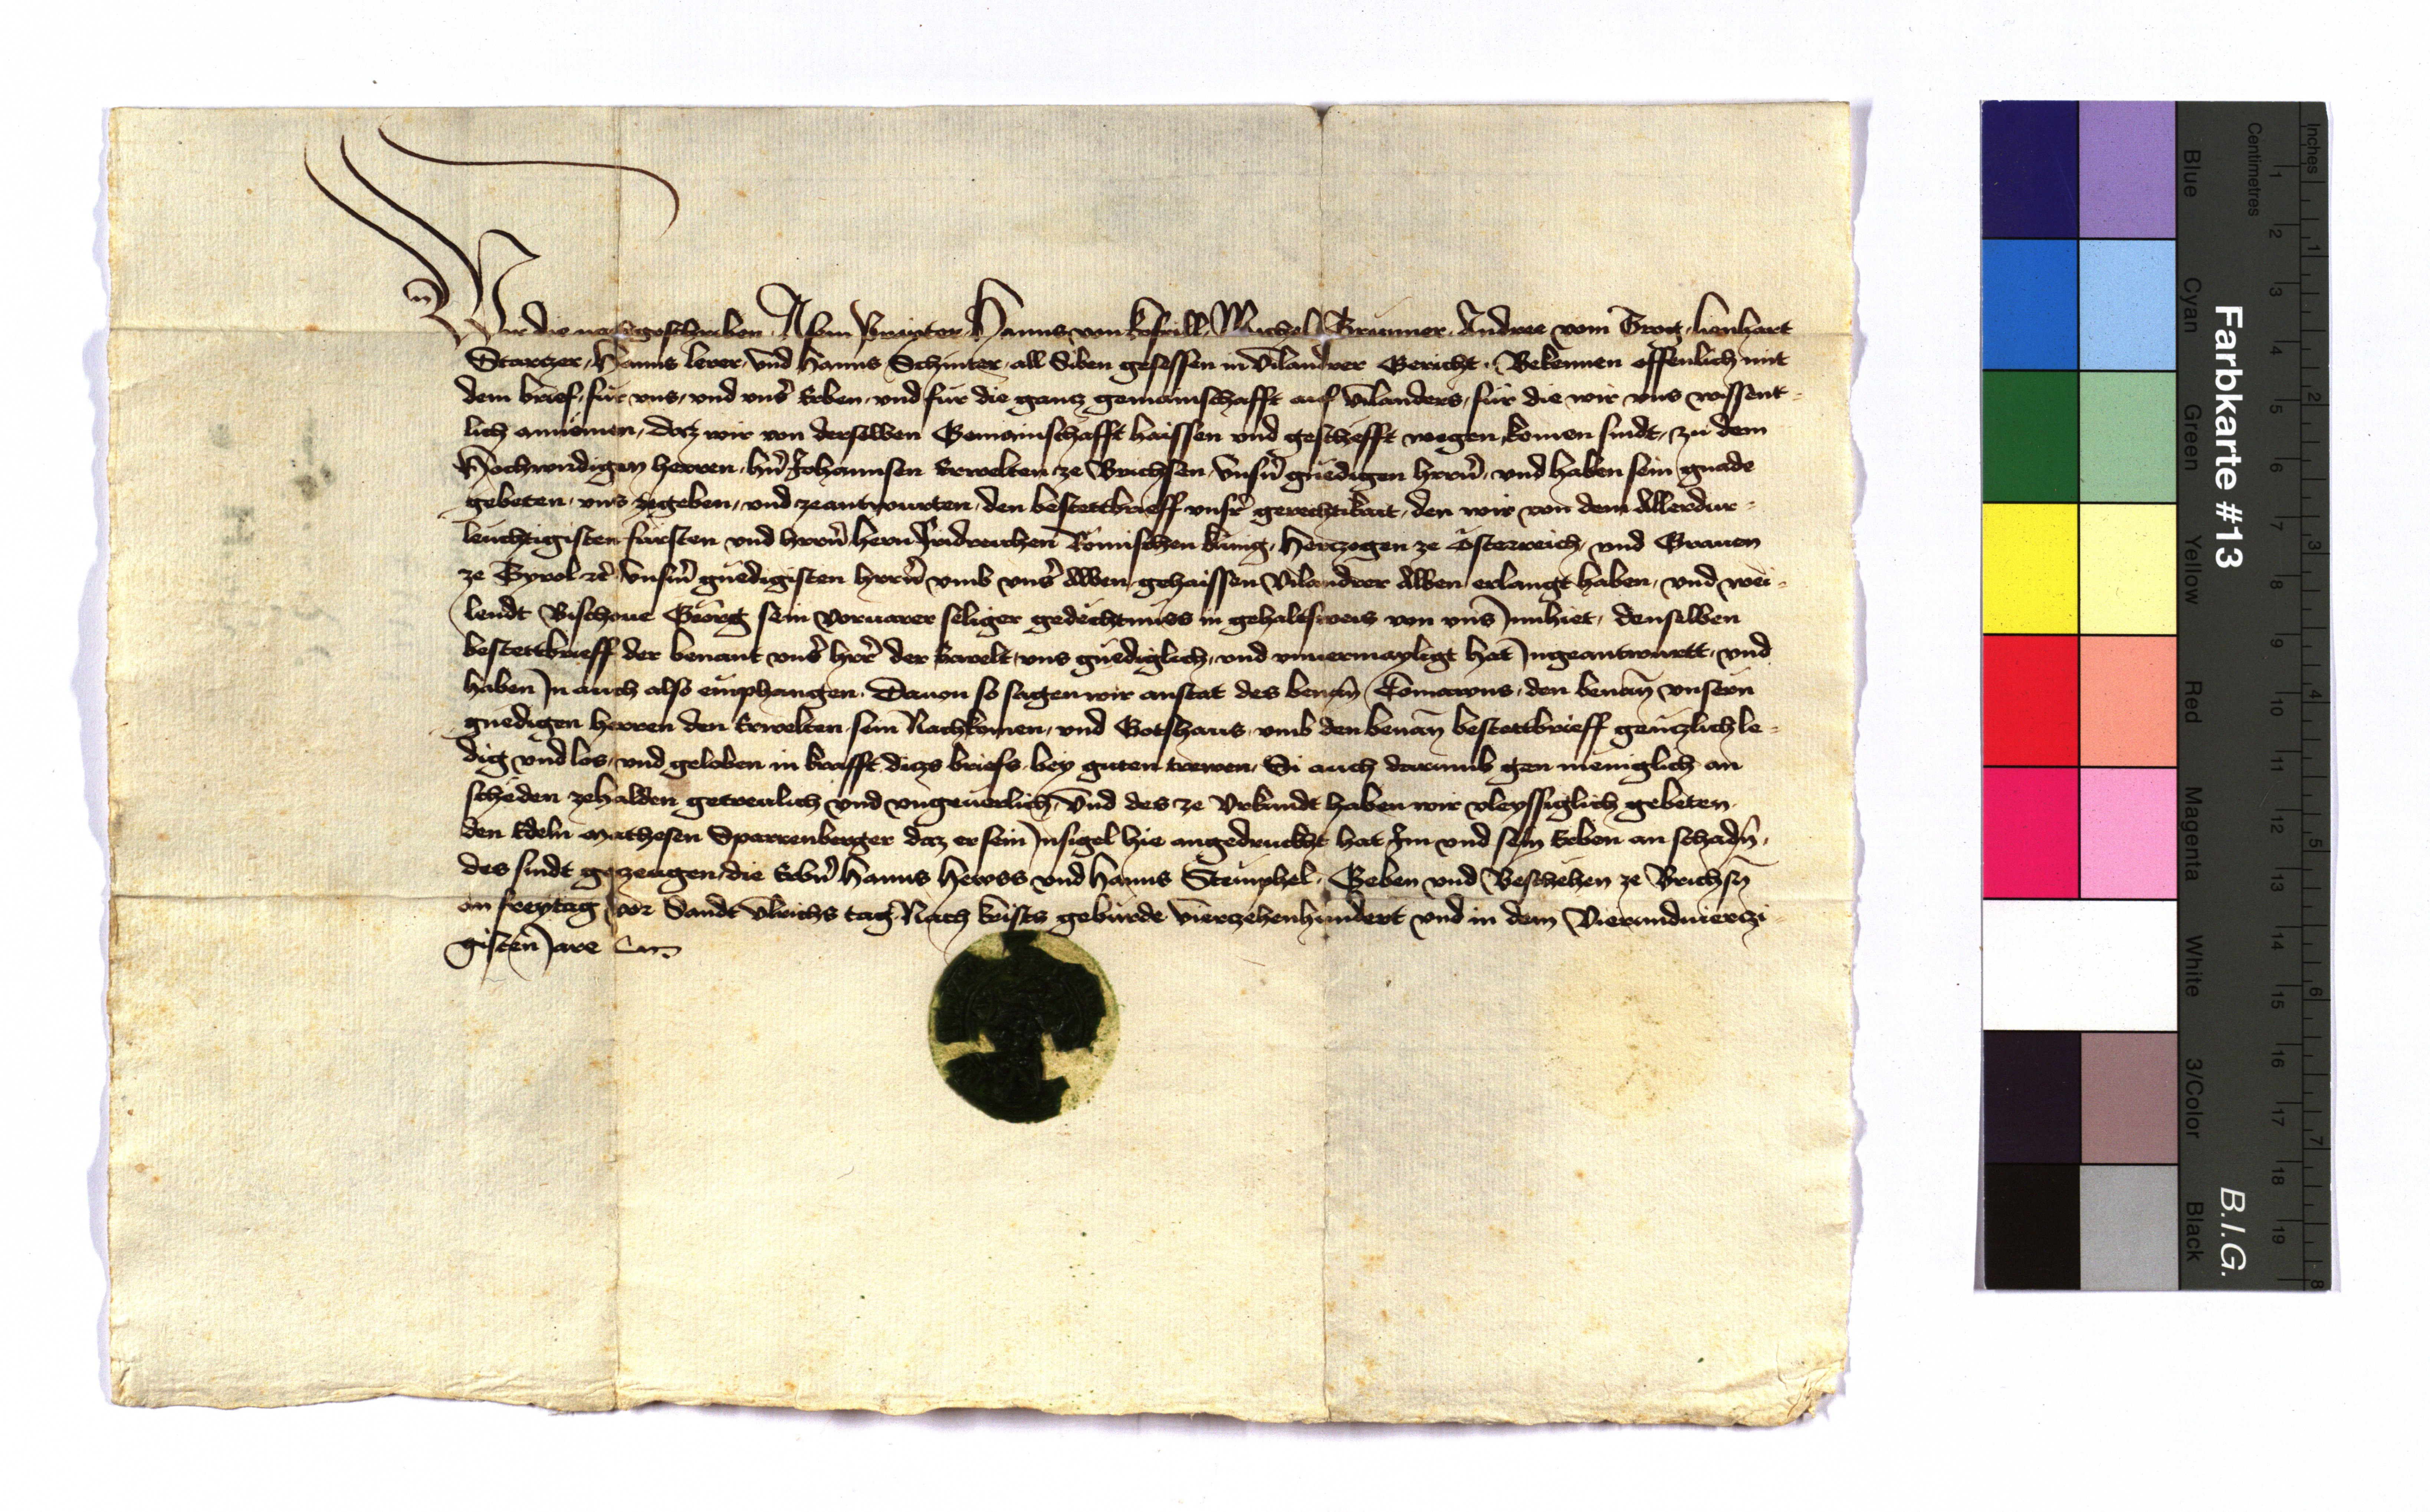 Wir die nachgeschriben Asem Hanns von Kofrill Michel Brunner Andree vom Trog lienhart
Starczer Hanns lerer vnd Hanns Schinter all Siben gesessen in Vilandrer Gericht Bekennen offenlich mit
dem brief für vns vnd vns̉ Erben vnd für die gancz gemainschafft auf Vilanders für die wir vns wissent-
lich annemen, daz wir von derselben Gemainschafft haissen vnd gescheft wegen komen sindt zu dem
Hochwirdigen herren hn̉ Johannsen Erwelten ze Brichsen vnsn̉ gnedigen hrrn̉ vnd haben sein gnade
gebeten vns zegeben vnd zeantwurten den bestettbrieff vnsr̉ gerechtikait, den wir von dem Allerdur-
leuchtigisten fürsten vnd hrrn̉ hern Fridreichen Römischen kunig, Herczogen ze Österreich vnd Grauen
ze Tyrol ꝛc̉ vnsm̉ gnedigisten hrrn̉ vmb vns̉ Alben gehaissen Vilandrer Alben erlangt haben, vnd wei-
lendt Bischoue Georg sein voruarer seliger gedechtnuss in gehaltsweis von vns Innhiet, denselben
bestettbrieff der benant vns̉ hrr̉ der Erwelt vns gnediglich vnd vnuermayligt hat Ingeantwurtt vnd
haben In auch also emphangen. Dauon so sagen wir anstat des benan̄ Comawns den benan̄ vnsern
gnedigen herren den Erwelten sein Nachkomen vnd Gotshaus vmb den benan̄ bestettbrieff genczlich le-
dig vnd los vnd geloben in krafft diczs briefs bey guten trewen Si auch darumb gen meniglich an
scheden zehalden getreulich vnd vngeuerlich Vnd des ze Vrkundt haben wir vleyssiglich gebeten
den Edeln mathesen Sparrenberger daz er sein Insigel hie angedruckht hat Im vnd sein Erben an schadn̉,
des sindt gezeugen die Erbn̉ Hanns Hewss vnd Hanns Stemphel. Geben vnd Beschehen ze Brichsn̄
an freytag vor Sandt Vlrichs tag Nach krists geburde vierczehenhundert vnd in dem Vierundvierczi-
gisten Jare
Farbkarte #13
B.I.G.
Inches
Centimetres
1 2 3 4 5 6 7 8 9 10 11 12 13 14 15 16 17 18 19
1 2 3 4 5 6 7 8
Blue
Cyan
Green
Yellow
Red
Magenta
White
3/Color
Black